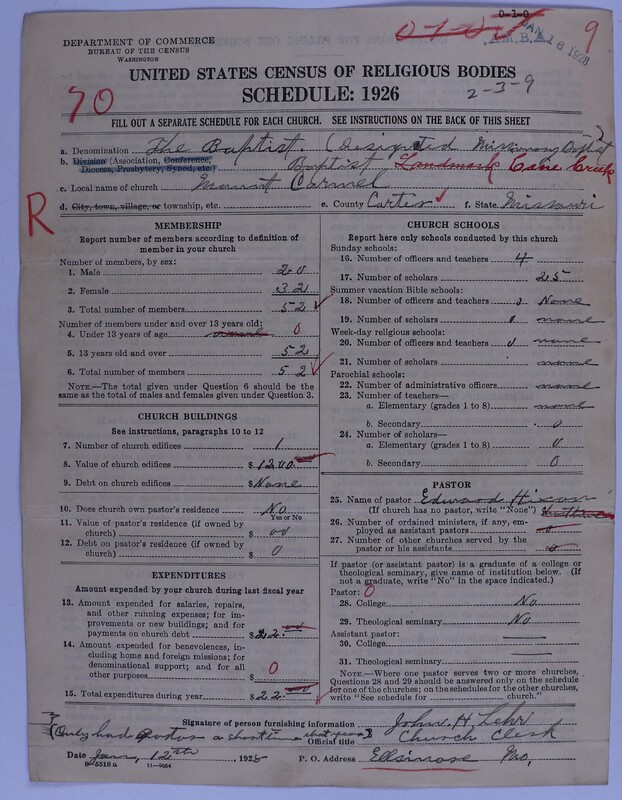 0-1-0
0-1-0
A.M.B.A.
JAN 16 1928
9
DEPARTMENT OF COMMERCE
BUREAU OF THE CENSUS
WASHINGTON
UNITED STATES CENSUS OF RELIGIOUS BODIES
SCHEDULE: 1926
2-3-9
70
FILL OUT A SEPARATE SCHEDULE FOR EACH CHURCH. SEE INSTRUCTIONS ON THE BACK OF THIS SHEET
a. Denomination The Baptist. (Designated Missionary Baptist)
b. Division (Association, Conference, Diocese, Presbytery, Synod, etc.) Baptist Landmark Cane Creek
c. Local name of church Mount Carmel
R
d. City, town, village, or township, etc. e. County Carter f. State Missouri
MEMBERSHIP
Report number of members according to definition of
member in your church
Number of members, by sex:
1. Male 20
2. Female 32
3. Total number of members 52
Number of members under and over 13 years old:
4. Under 13 years of age 0
5. 13 years old and over 52
6. Total number of members 52
NOTE.—The total given under Question 6 should be
the same as the total of males and females given under Question 3.
CHURCH BUILDINGS
See instructions, paragraphs 10 to 12
7. Number of church edifices 1
8. Value of church edifices $1200
9. Debt on church edifices $None
10. Does church own pastor's residence No
Yes or No
11. Value of pastor's residence (if owned by
church) $ 00
12. Debt on pastor's residence (if owned by
church) $ 0
EXPENDITURES
Amount expended by your church during last fiscal year
13. Amount expended for salaries, repairs,
and other running expenses; for im-
provements or new buildings; and for
payments on church debt $22.00
14. Amount expended for benevolences,
including home and foreign missions; for
denominational support; and for all
other purposes $ 0
15. Total expenditures during year $22.00
CHURCH SCHOOLS
Report here only schools conducted by this church
Sunday schools:
16. Number of officers and teachers 4
17. Number of scholars 25
Summer vacation Bible schools:
18. Number of officers and teachers 0 None
19. Number of scholars 0 none
Week-day religious schools:
20. Number of officers and teachers 0 none
21. Number of scholars none
Parochial schools:
22. Number of administrative officers none
23. Number of teachers—
a. Elementary (grades 1 to 8) none
b. Secondary 0
24. Number of scholars—
a. Elementary (grades 1 to 8) 0
b. Secondary 0
PASTOR
25. Name of pastor Edward Hixon
(If church has no pastor, write "None")
26. Number of ordained ministers, if any, em-
ployed as assistant pastors 0
27. Number of other churches served by the
pastor or his assistants 0
If pastor (or assistant pastor) is a graduate of a college or
theological seminary, give name of institution below. (If
not a graduate, write "No" in the space indicated.)
Pastor: 0
28. College No
29. Theological seminary No
Assistant pastor:
30. College
31. Theological seminary
NOTE.—Where one pastor serves two or more churches,
Questions 28 and 29 should be answered only on the schedule
for one of the churches; on the schedules for the other churches,
write "See schedule for church."
Signature of person furnishing information John. H. Lehr
(Only had Pastor a short
Official title Church Clerk
Date Jan, 12th, 1928 P. O. Address Ellsinore Mo,
8-5518a 11-9054